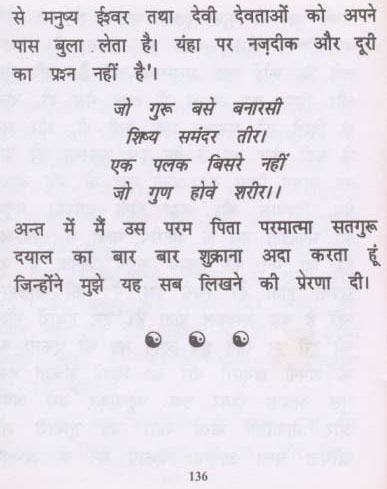 से मनुष्य ईश्वर तथा देवी देवताओं को अपने
पास बुला लेता है। यंहा पर नज़दीक और दूरी
का प्रश्न नहीं है'।
जो गुरू बसे बनारसी
शिष्य समंदर तीर।
एक पलक बिसरे नहीं
जो गुण होवे शरीर।।
अन्त में मैं उस परम पिता परमात्मा सतगुरू
दयाल का बार बार शुक्राना अदा करता हूं
जिन्होंने मुझे यह सब लिखने की प्रेरणा दी।
136